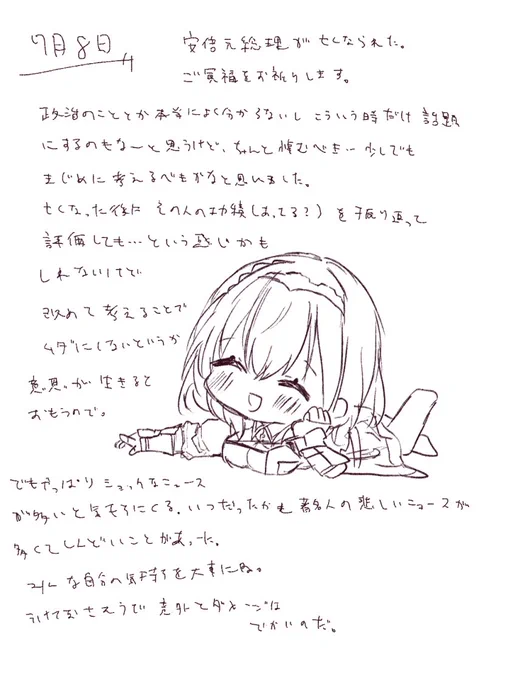 7月8日
安倍元総理が亡くなられた。
ご冥福をお祈りします。
政治のこととか本当によく分からないし こういう時だけ 話題
にするのもなーと思うけど、ちゃんと悼むべき…少しでも
まじめに考えるべきかなと思いました。
亡くなった後に その人の功績(あってる?)を振り返って
評価しても…という感じかも
しれないけど
改めて考えることで
ムダにしないというか
意思が生きると
おもうので。
でもやっぱり ショックなニュース
が多いと気もそうにくる。いつだったかも 著名人の悲しいニュースが
多くてしんどいことがあった。
みんな自分の気持ちを大事にね。
意外とダメージは
でかいのだ。